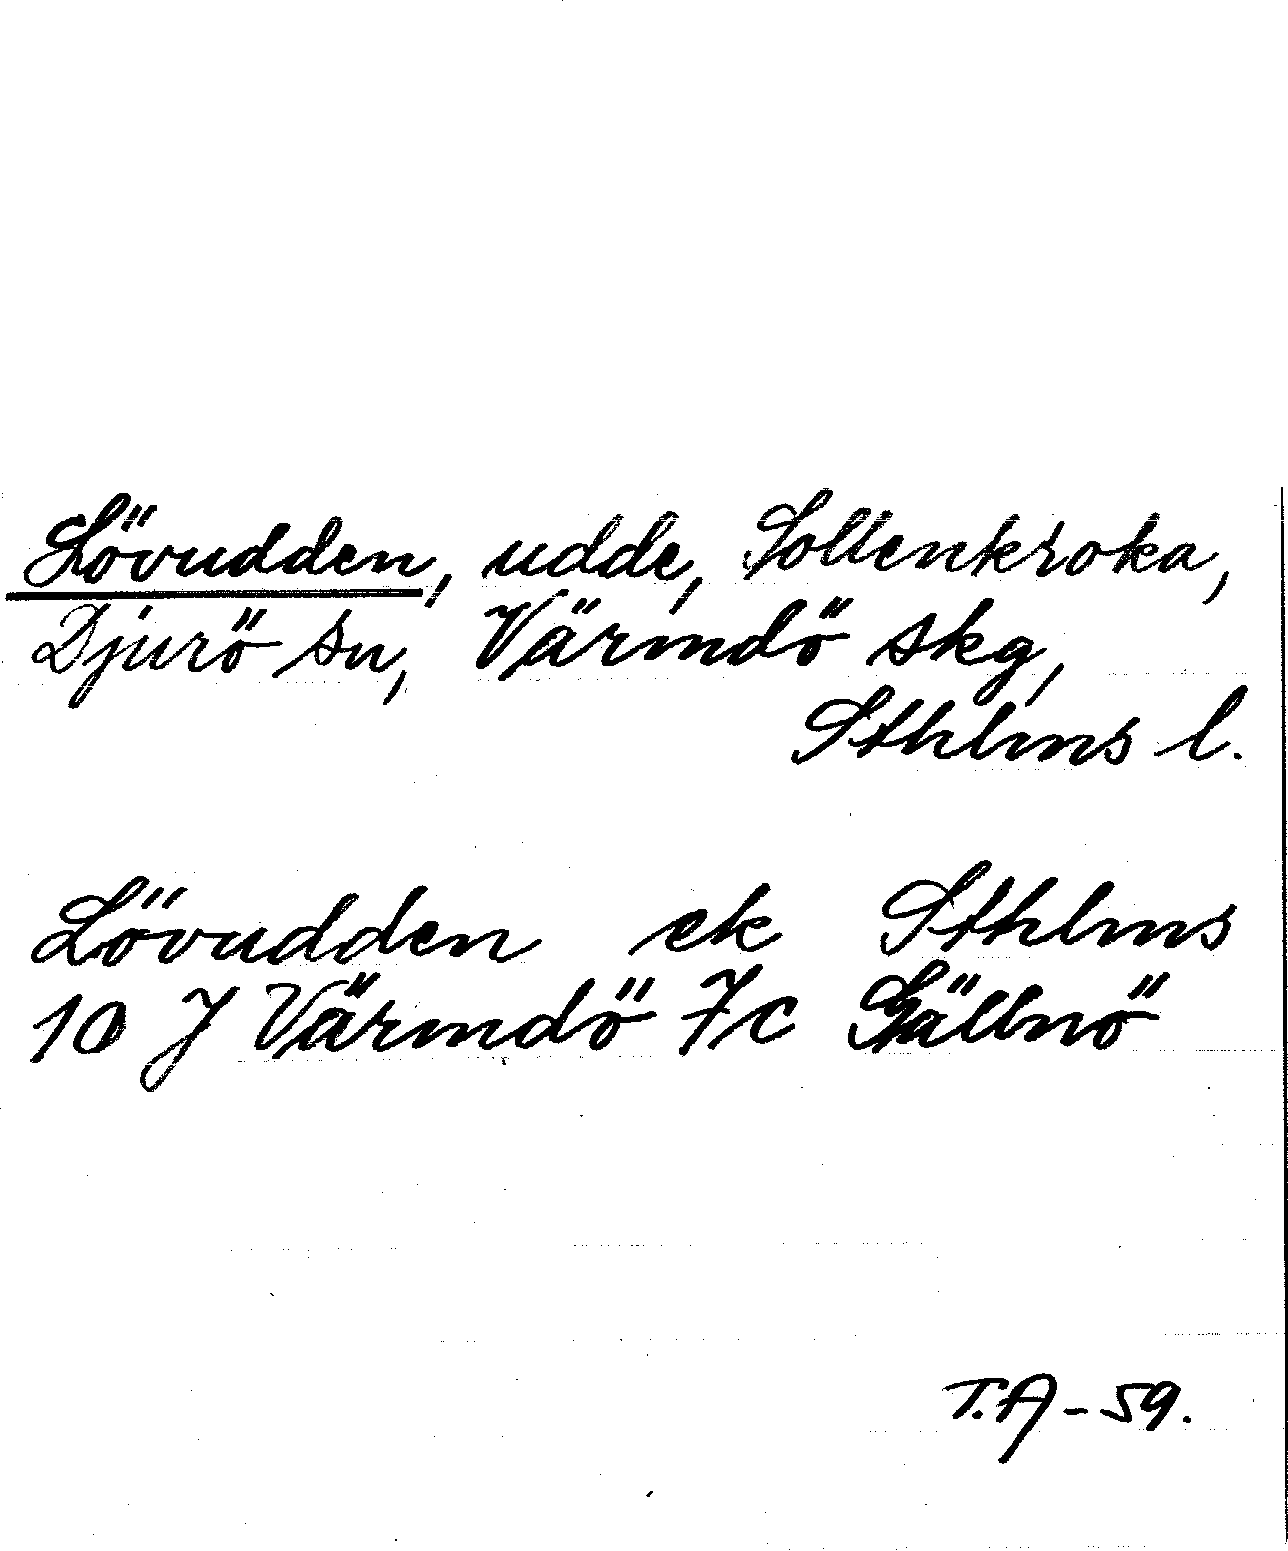 Lövudden, udde, Sollenkroka,
Djurö sn, Värmdö skg,
Sthlms l.
Lövudden ek Sthlms
10 J Värmdö 7c Gällnö
T.A - 59.